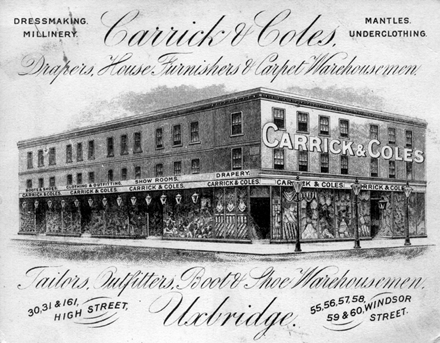 DRESSMAKING.
MILLINERY.
Carrick & Coles,
MANTLES.
UNDERCLOTHING.
Drapers, House Furnishers & Carpet Warehousemen.
CARRICK & COLES
BOOTS & SHOES. CLOTHING & OUTFITTING. SHOW ROOMS. DRAPERY.
CARRICK & COLES. CARRICK & COLES. CARRICK & COLES. CARRICK & COLES. CARRICK & COLES. CARRICK & COLES.
Tailors, Outfitters, Boot & Shoe Warehousemen,
30, 31 & 161,
HIGH STREET,
Uxbridge.
55, 56, 57, 58,
59 & 60, WINDSOR
STREET.